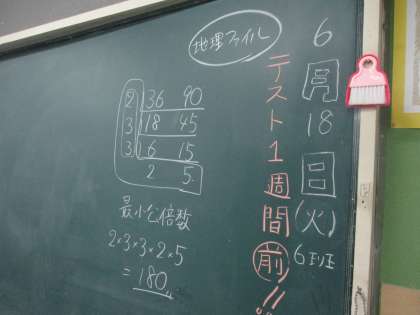 6月18日(火)
6班
テスト1週間前!!
地理ファイル
2 36 90
3 18 45
3 6 15
2 5
最小公倍数
2×3×3×2×5
=180